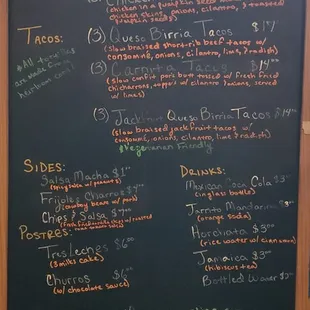 chicken in a pumpkin seed
chicken skins, onions, cilantro, & toasted
pumpkin seeds)
TACOS:
(3) Queso Birria Tacos
(slow braised short-rib beef tacos w/
consommé, onions, cilantro, lime, & radish)
* All tortillas
are made
(3) Carnita Tacos $14
(slow confit pork butt tossed w/ fresh fried
chicharrons, topped w/ cilantro & onions, served
w/ limes)
(3) Jackfruit Queso Birria Tacos $14
(slow braised jackfruit tacos w/
consommé, onions, cilantro, lime & radish)
*Vegetarian Friendly
SIDES:
Salsa Macha $1
w/ peanuts)
Frijoles Charros $4
(cowboy beans w/ pork)
Chips & Salsa
POSTRES:
Tres Leches $6
(3 milks cake)
Churros $6
(w/ chocolate sauce)
DRINKS:
Mexican Coca Cola $3
(in glass bottle)
Jarrito Mandarina $3
(orange soda)
Horchata $3
(rice water w/ cinnamon)
Jamaica $3
(hibiscus tea)
Bottled Water